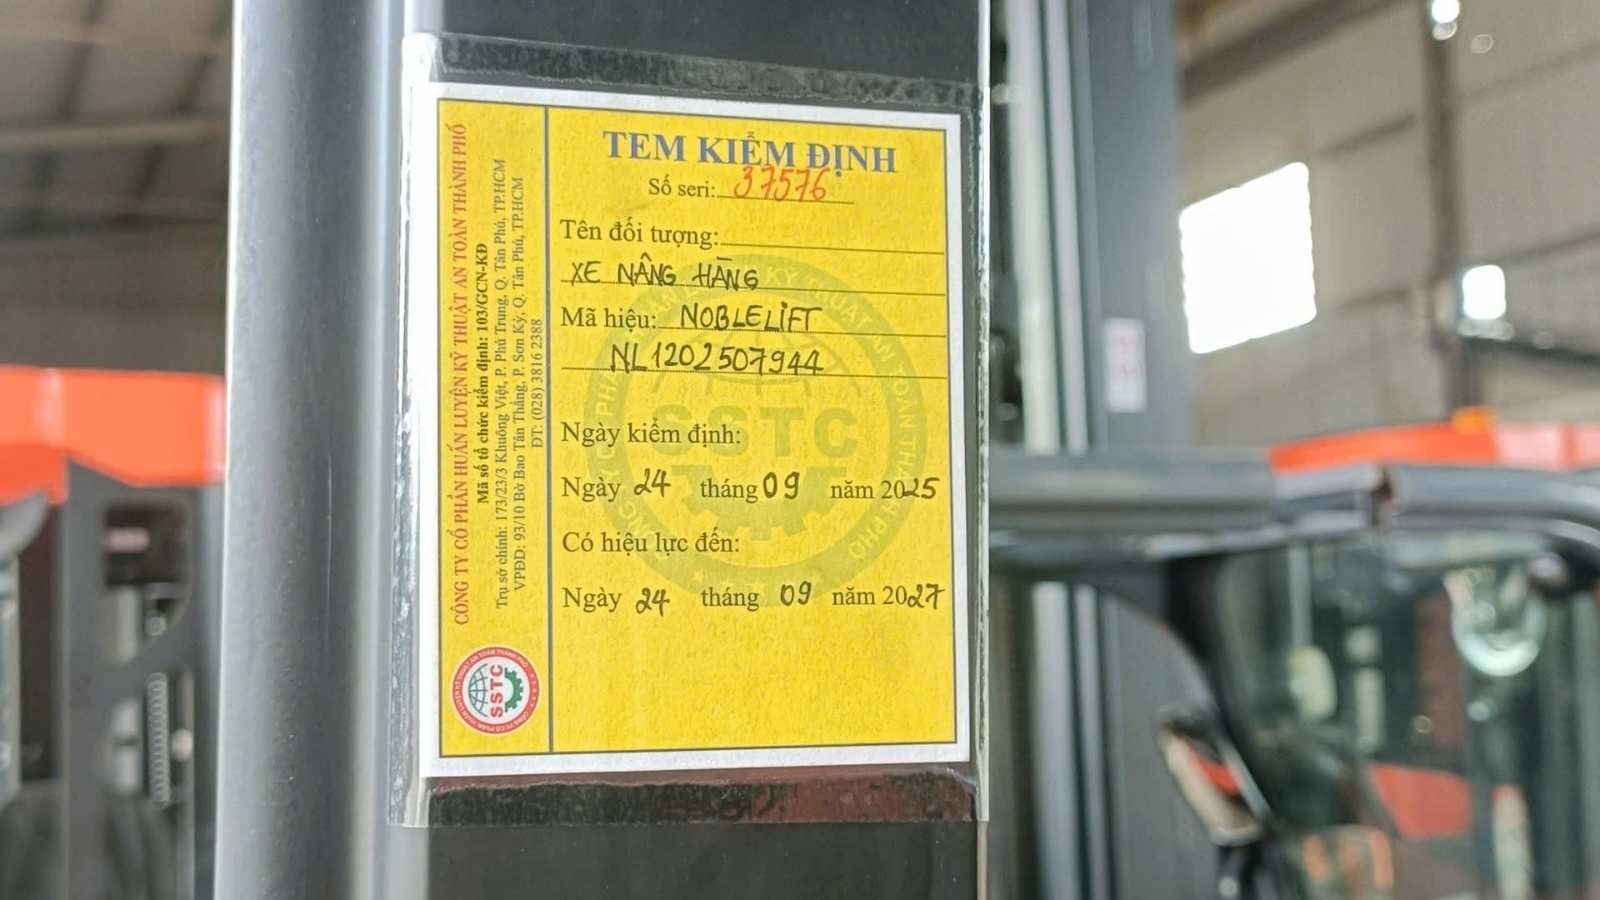 CÔNG TY CỔ PHẦN HUẤN LUYỆN KỸ THUẬT AN TOÀN THÀNH PHỐ
Mã số tổ chức kiểm định: 103/GCN-KĐ
Trụ sở chính: 173/23/3 Khuông Việt, P. Phú Trung, Q. Tân Phú, TP.HCM
VPĐD: 93/10 Bờ Bao Tân Thắng, P. Sơn Kỳ, Q. Tân Phú, TP.HCM
ĐT: (028) 3816 2388
SSTC
TEM KIỂM ĐỊNH
Số seri: 37576
Tên đối tượng:
XE NÂNG HÀNG
Mã hiệu: NOBLELIFT
NL1202507944
SSTC
Ngày kiểm định:
Ngày 24 tháng 09 năm 2025
Có hiệu lực đến:
Ngày 24 tháng 09 năm 2027